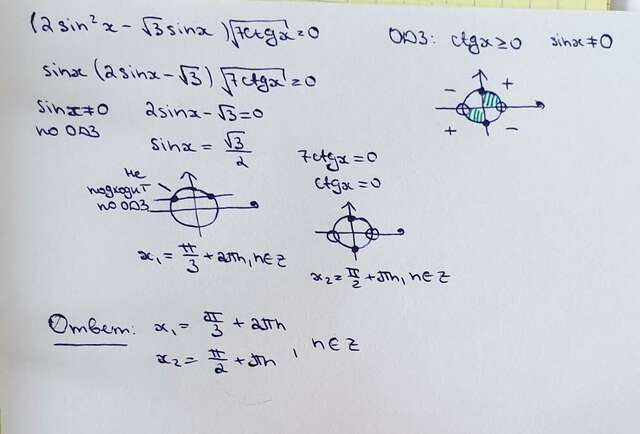 (2sin²x − √3 sinx)√7ctgx = 0
ОДЗ: ctgx ≥ 0 sinx ≠ 0
sinx (2sinx − √3)√7ctgx = 0
− +
+ −
sinx ≠ 0
по ОДЗ
2sinx − √3 = 0
sinx = √3/2
не
подходит
по ОДЗ
x₁ = π/3 + 2πn, n∈Z
7ctgx = 0
ctgx = 0
x₂ = π/2 + πn, n∈Z
Ответ: x₁ = π/3 + 2πn
x₂ = π/2 + πn, n∈Z